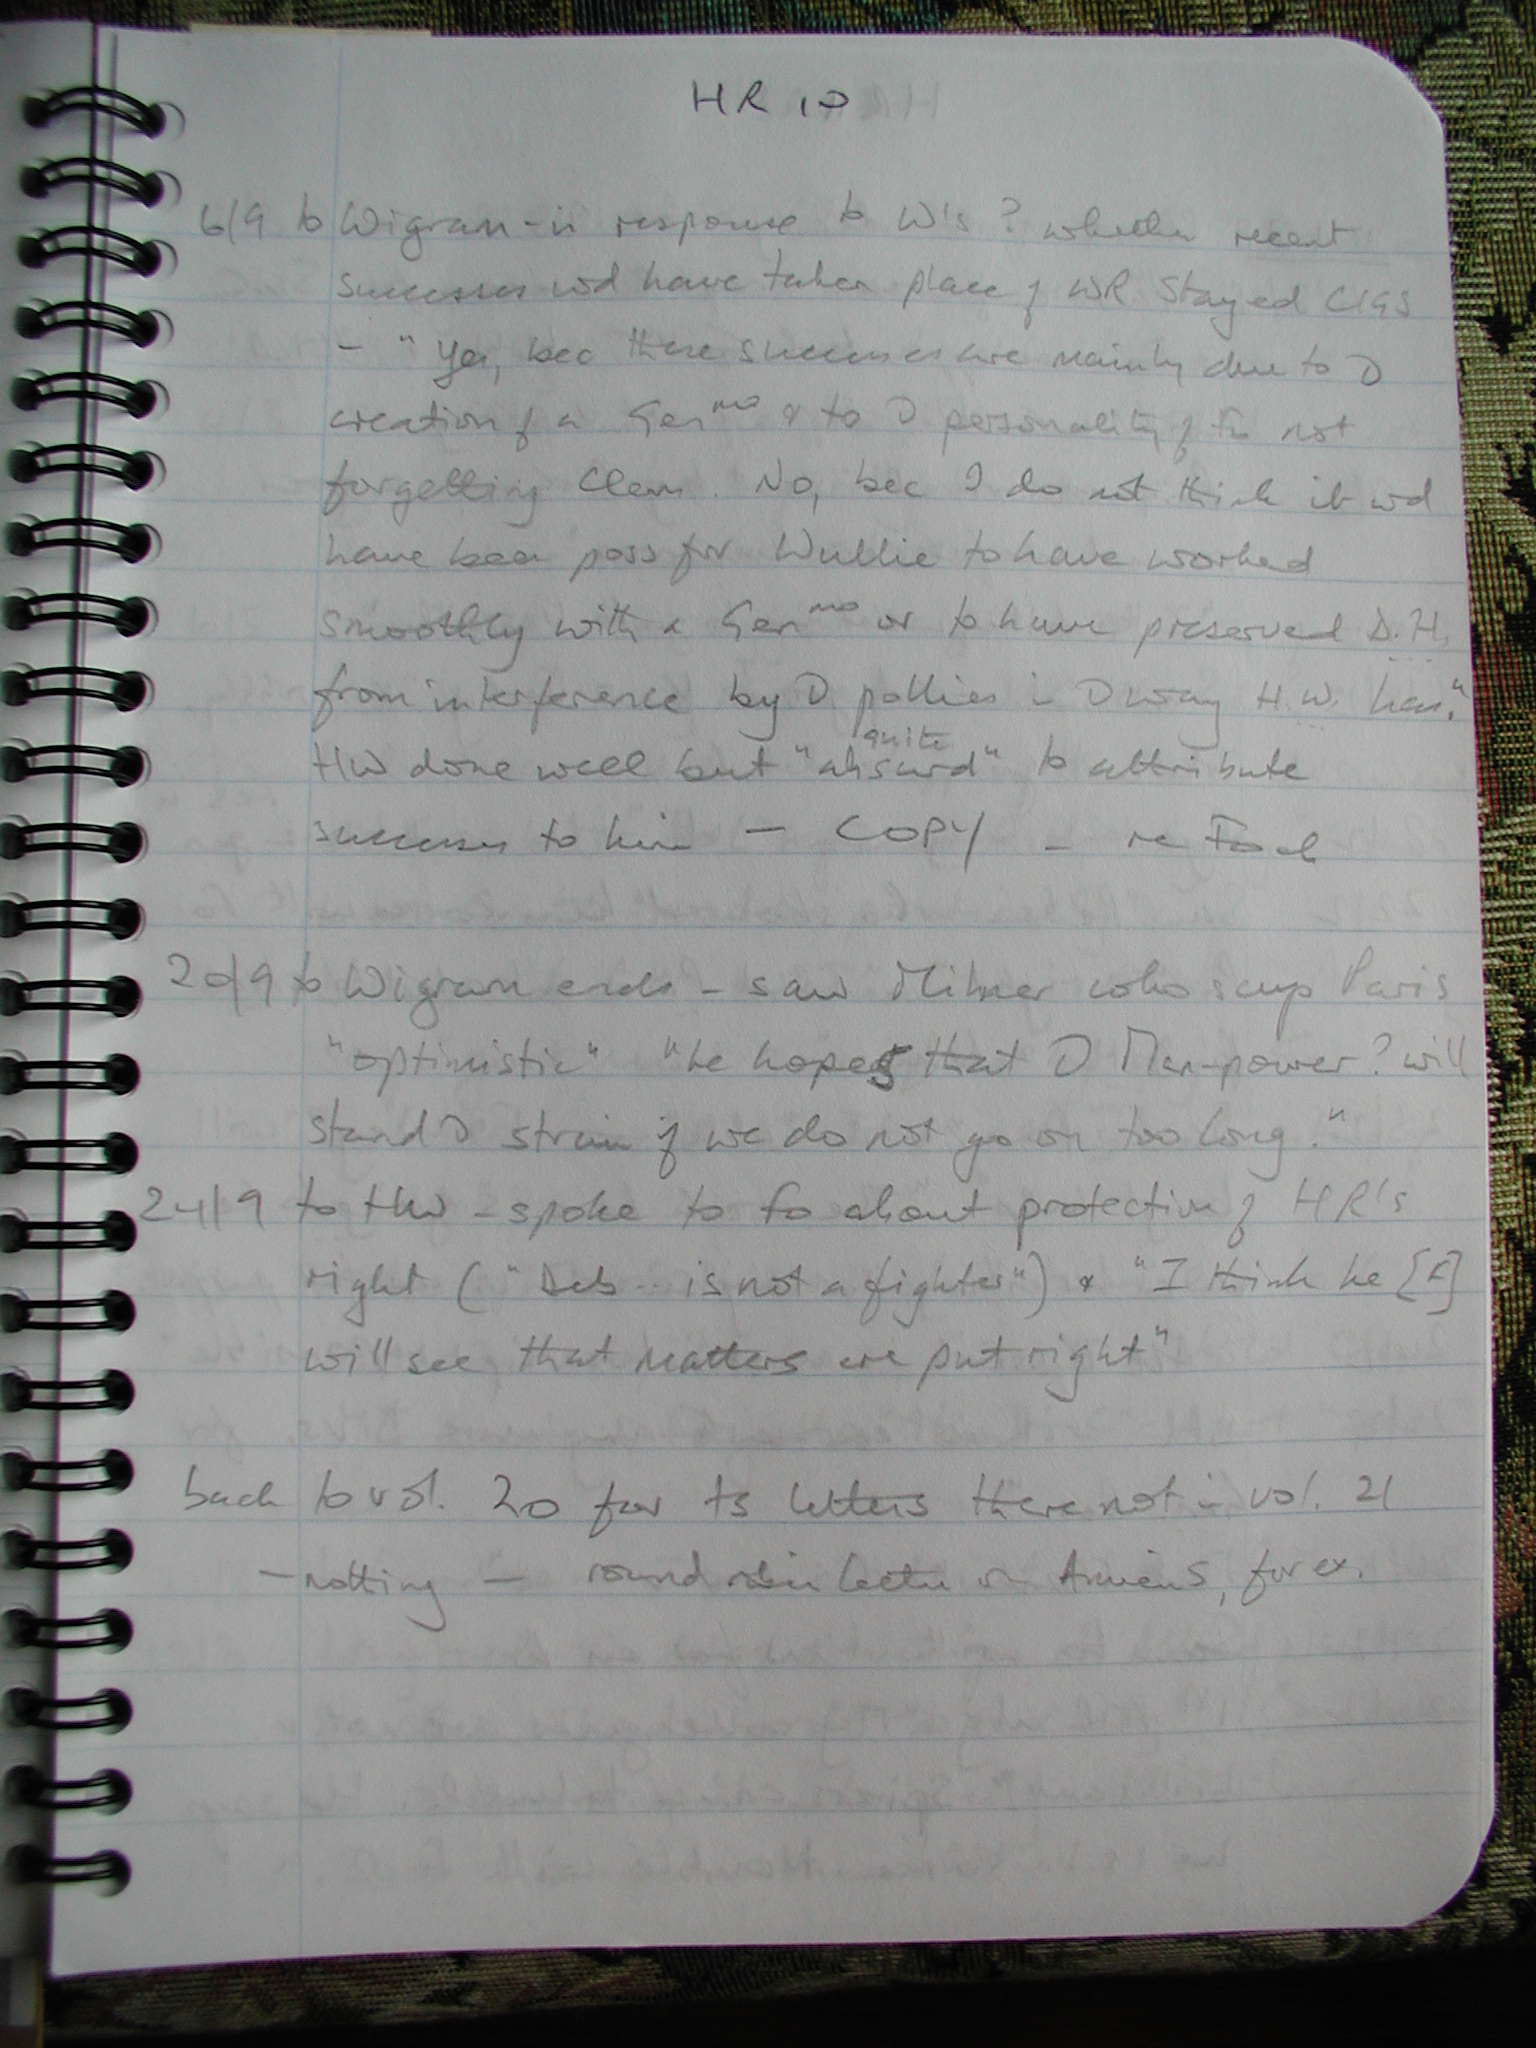 HR 10
6/9 to Wigram - in response to W's ? whether recent
successes wd have taken place if WR stayed CIGS
- "Yes, bec these successes are mainly due to D
creation of a Gen mo & to D personality of Fo not
forgetting Clem. No, bec I do not think it wd
have been poss for Wullie to have worked
smoothly with a Gen mo or to have preserved D.H.
from interference by D pollies in D way H.W. has."
HW done well but "quite absurd" to attribute
successes to him - COPY - re Foch
20/9 to Wigram ends - saw Milner who says Paris
"optimistic" "he hopes that D Man-power? will
stand D strain if we do not go on too long."
24/9 to HW - spoke to Fo about protection of HR's
right ("Deb... is not a fighter") & "I think he [F]
will see that matters are put right"
back to vol. 20 for ts letters there not in vol. 21
- nothing - round robin letter on Amiens, for ex.